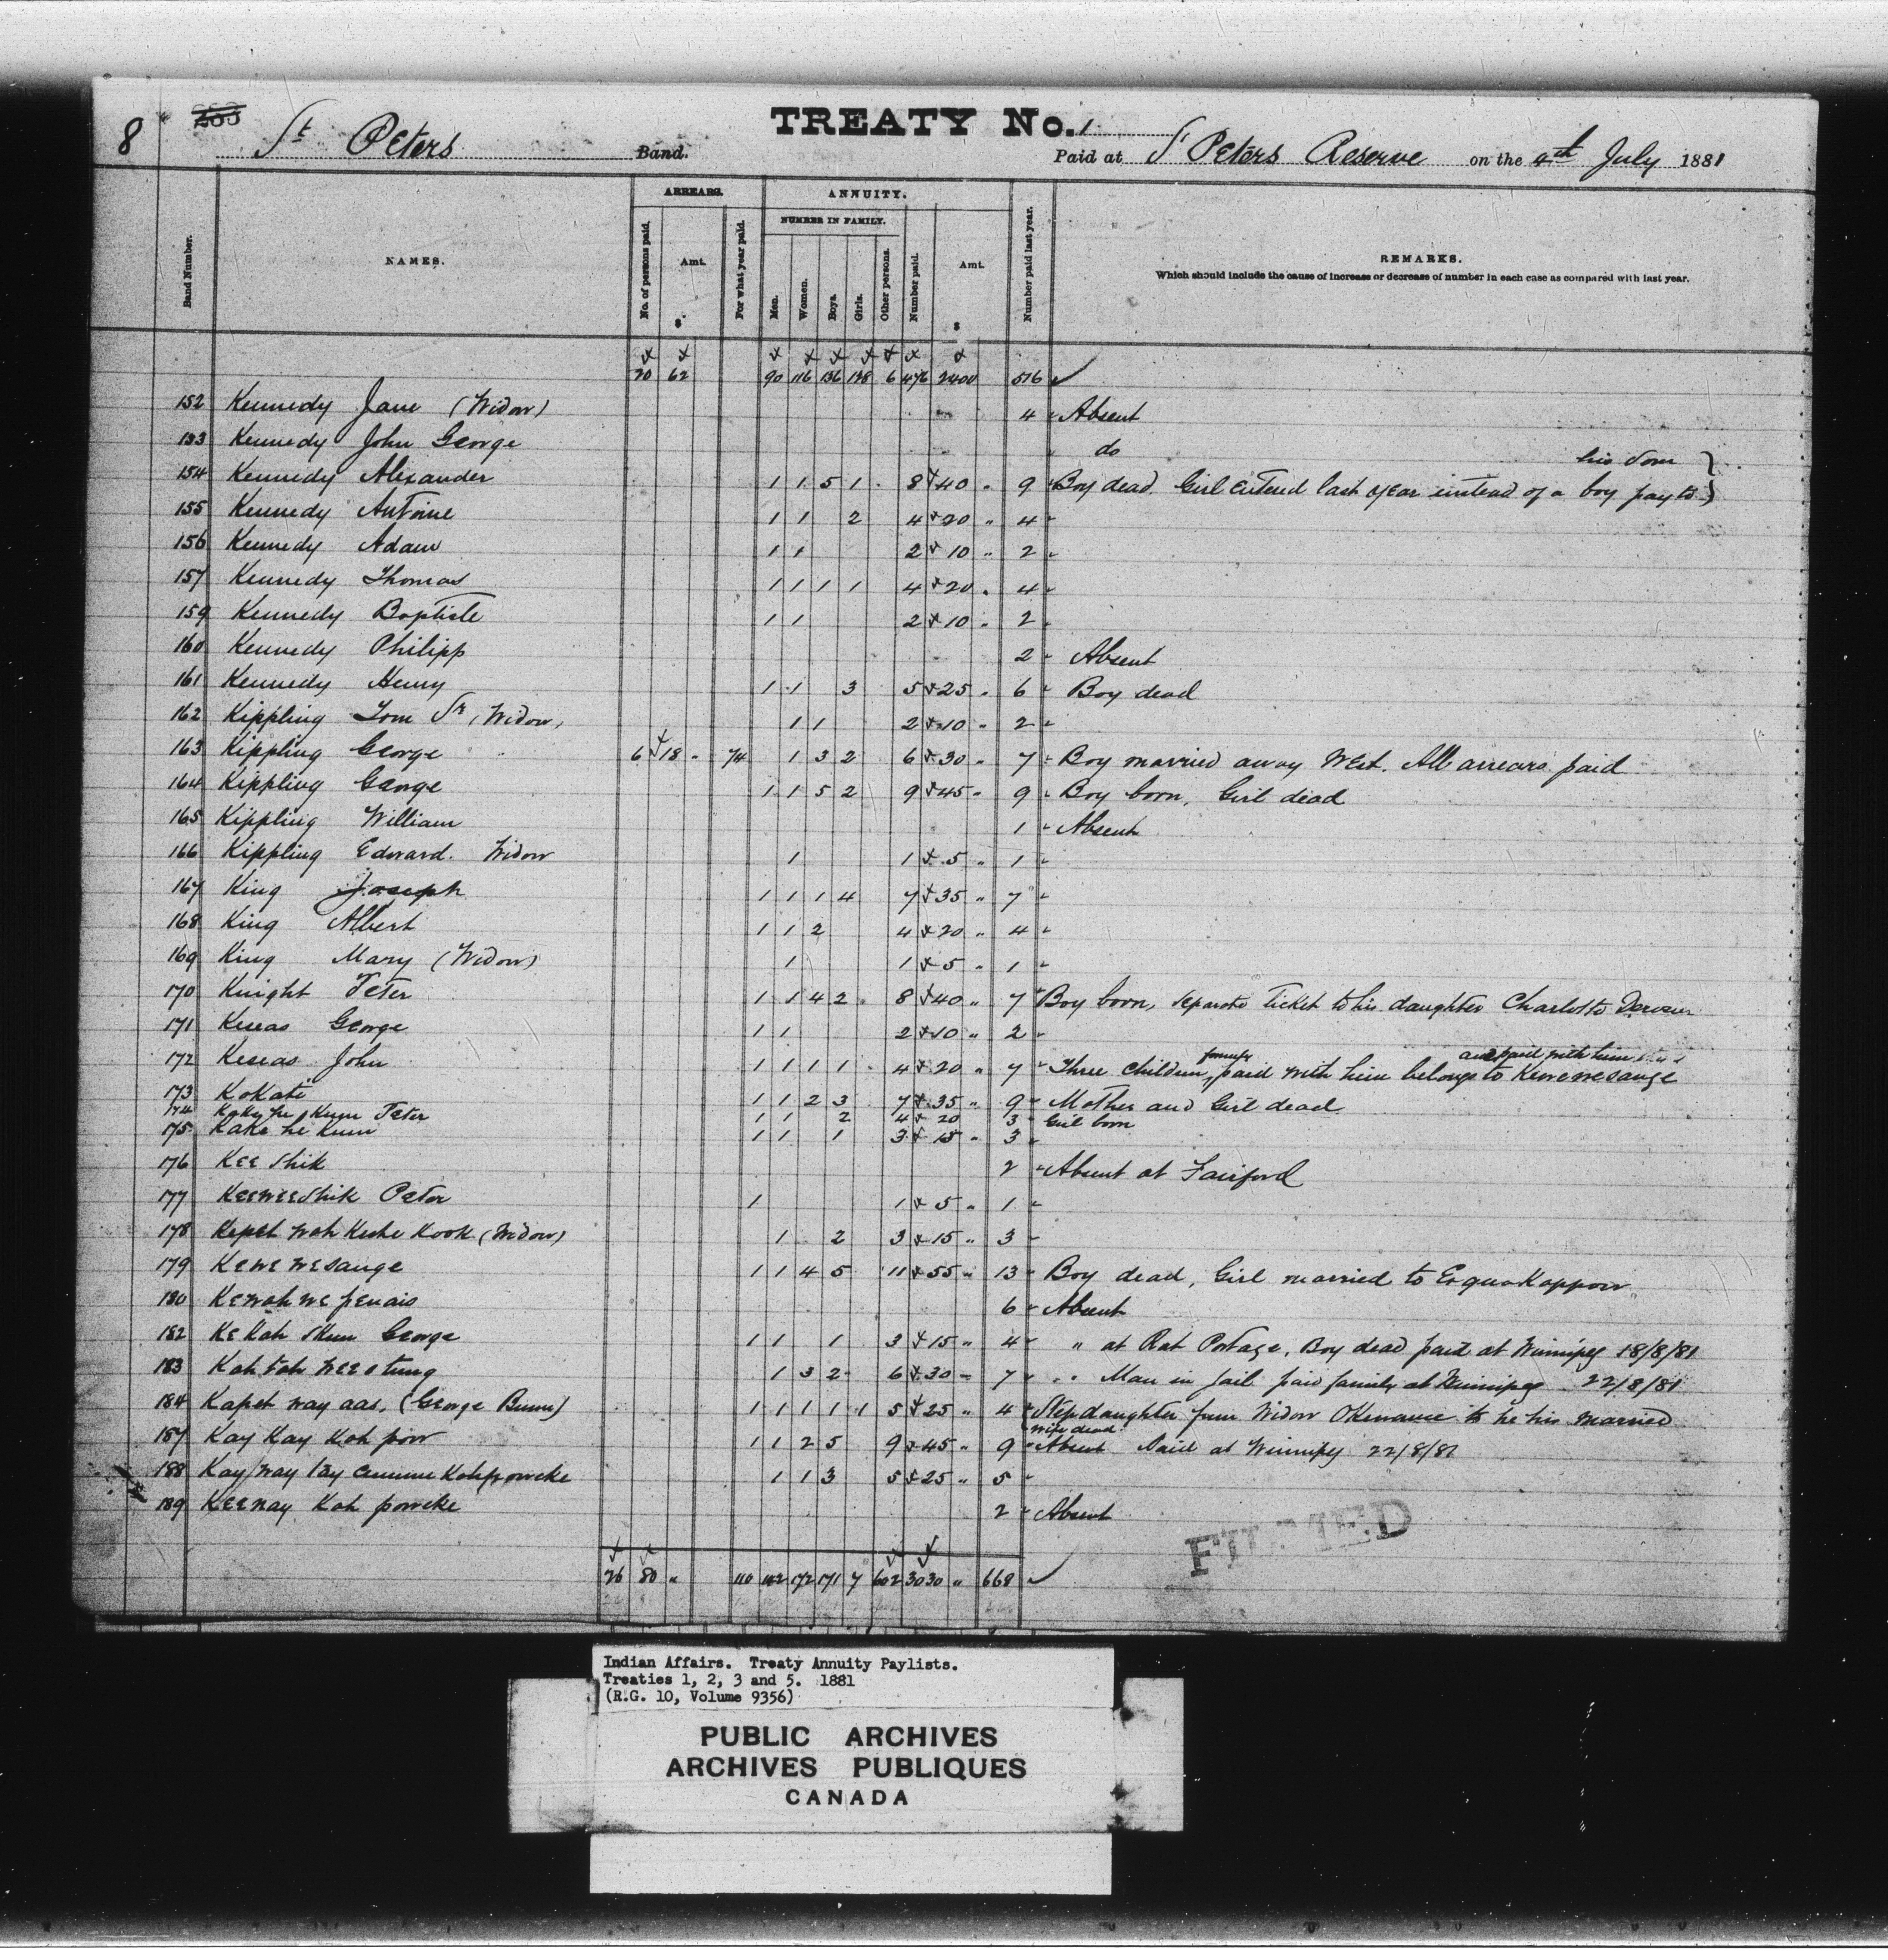 8
TREATY No. 1
St Peters Band.
Paid at St Peters Reserve on the 4th July 1881
ARREARS. ANNUITY.
NUMBER IN FAMILY.
Band Number. NAMES. No. of persons paid. Amt. $ For what year paid. Men. Women. Boys. Girls. Other persons. Number paid. Amt. $ Number paid last year. REMARKS.
Which should include the cause of increase or decrease of number in each case as compared with last year.
20 62 90 116 136 128 6 476 2400 516
152 Kennedy Jane (Widow) 4 Absent
153 Kennedy John George do
his Son
154 Kennedy Alexander 1 1 5 1 8 40 " 9 Boy dead. Girl entered last year instead of a boy pay to
155 Kennedy Antoine 1 1 2 4 20 " 4
156 Kennedy Adam 1 1 2 10 " 2
157 Kennedy Thomas 1 1 1 1 4 20 " 4
159 Kennedy Baptiste 1 1 2 10 " 2
160 Kennedy Philipp 2 Absent
161 Kennedy Henry 1 1 3 5 25 " 6 Boy dead
162 Kippling Tom Sr (Widow) 1 1 2 10 " 2
163 Kippling George 6 18 " 74 1 3 2 6 30 " 7 Boy married away West. All arrears paid
164 Kippling George 1 1 5 2 9 45 " 9 Boy born, Girl dead
165 Kippling William 1 Absent
166 Kippling Edward. Widow 1 1 5 " 1
167 King Joseph 1 1 1 4 7 35 " 7
168 King Albert 1 1 2 4 20 " 4
169 King Mary (Widow) 1 1 5 " 1
170 Knight Peter 1 1 4 2 8 40 " 7 Boy born, separate Ticket to his daughter Charlotte
171 Keseas George 1 1 2 10 " 2
172 Keseas John 1 1 1 1 4 20 " 7 Three Children, formerly paid with him belongs to Kewewesange and paid with him
173 Kokati 1 1 2 3 7 35 " 9 Mother and Girl dead
174 Peter 1 1 2 4 20 3 Girl born
175 Kake he Kum 1 1 1 3 15 " 3
176 Kee Shik 2 Absent at Fairford
177 Keeweeshik Peter 1 1 5 " 1
178 Kepet wah Keshe Kook (Widow) 1 2 3 15 " 3
179 Kewewesange 1 1 4 5 11 55 " 13 Boy dead, Girl married to Esquakappow
180 Kewah we penais 6 Absent
182 Ke Kah Skum George 1 1 1 3 15 " 4 " at Rat Portage, Boy dead paid at Winnipeg 18/8/81
183 Kah tah wee otung 1 3 2 6 30 7 " Man in Jail paid family at Winnipeg 22/8/81
184 Kapet way aas. (George Bunn) 1 1 1 1 1 5 25 " 4 Stepdaughter from Widow Okenawee to he his married
wife dead
187 Kay Kay Kah pow 1 1 2 5 9 45 " 9 Absent Paid at Winnipeg 22/8/81
188 Kay way tay Kahpowcke 1 1 3 5 25 " 5
189 Keenay Kah powcke 2 Absent
26 80 " 110 142 172 171 7 602 3030 " 668
FILMED
Indian Affairs. Treaty Annuity Paylists.
Treaties 1, 2, 3 and 5. 1881
(R.G. 10, Volume 9356)
PUBLIC ARCHIVES
ARCHIVES PUBLIQUES
CANADA